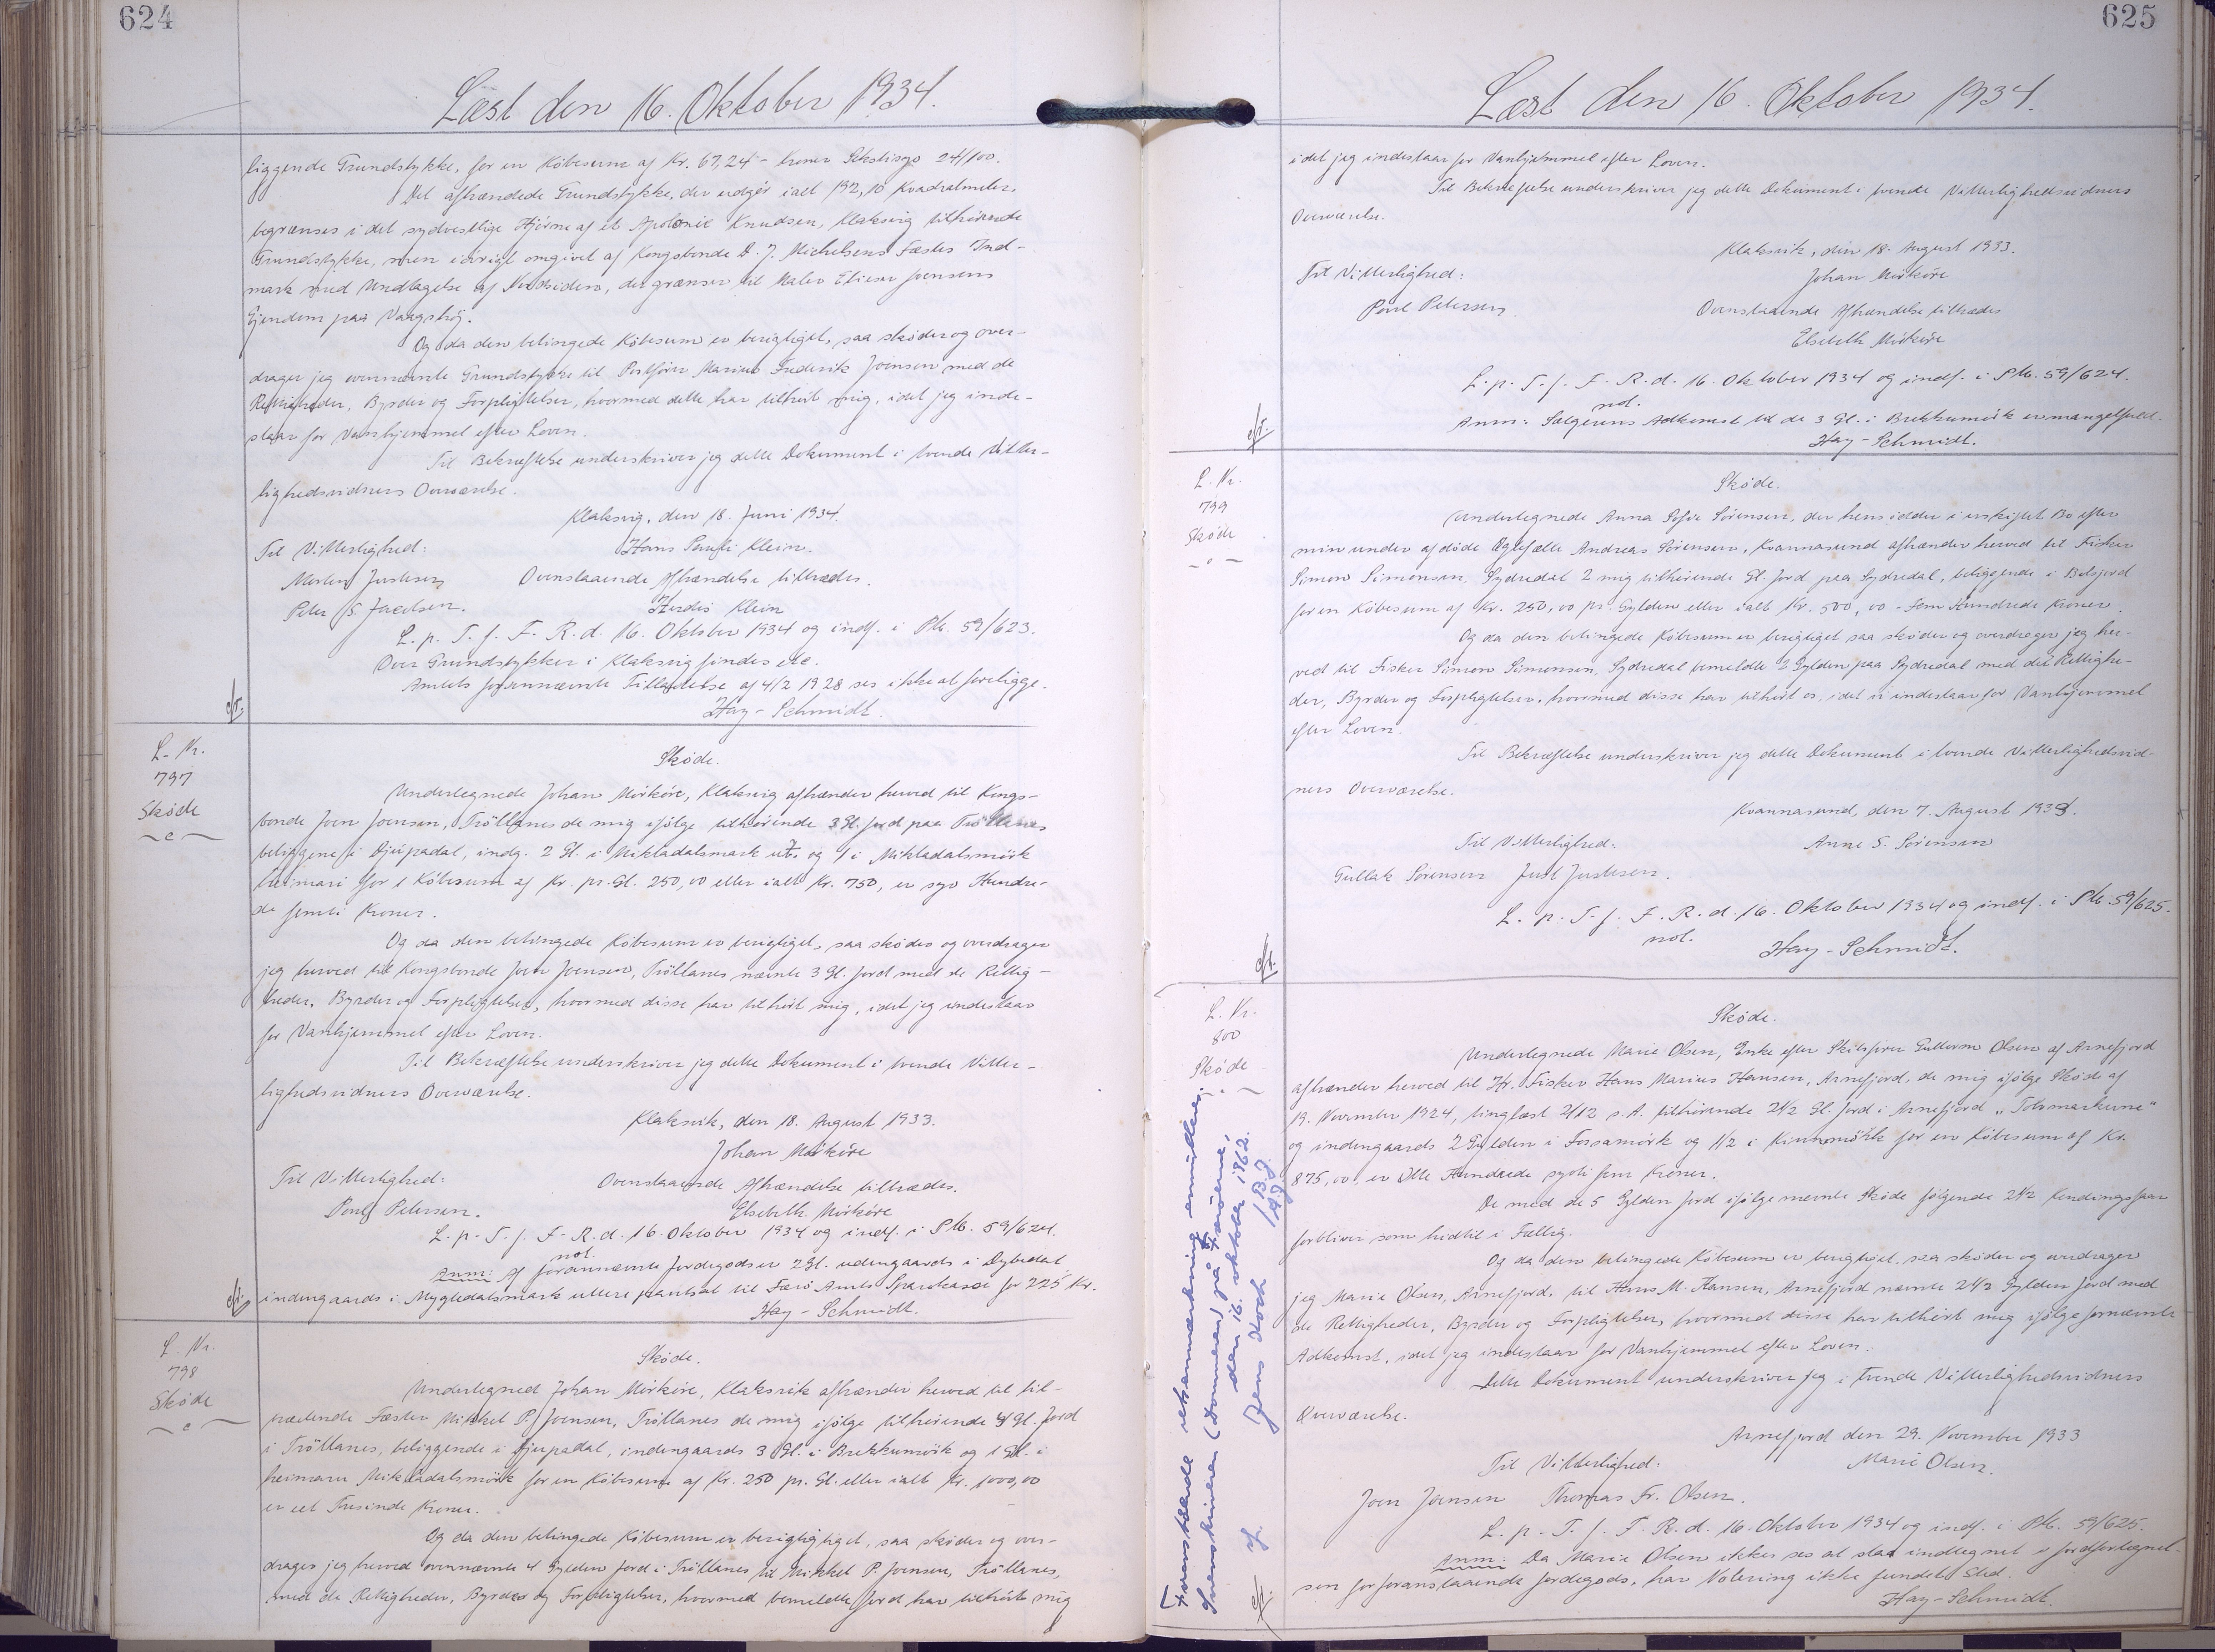 624
Læst den 16. Oktober 1934.
liggende Grundstykke, for en Købesum af Kr. 67,24 - Kroner Sekstisyv 24/100.
Det afhændede Grundstykke, der udgør ialt 192,10 Kvadratmeter,
begrænses i det sydvestlige Hjørne af et Apolonie Knudsen, Klaksvig tilhørende
Grundstykke, men iøvrigt omgivet af Kongsbonde D. J. Michelsens Fæstes Ind-
mark med Undtagelse af Nordsiden, der grænser til Maler Elieser Joensens
Ejendom paa Vaagshøj.
Og da den betingede Købesum er berigtiget, saa skøder og over-
drager jeg ovennævnte Grundstykke til Postfører Marius Frederik Joensen med de
Rettigheder, Byrder og Forpligtelser, hvormed dette har tilhørt mig, idet jeg inde-
staar for Vanhjemmel efter Loven.
Til Bekræftelse underskriver jeg dette Dokument i tvende Vitter-
lighedsvidners Overværelse.
Klaksvig, den 18. Juni 1934.
Til Vitterlighed: Hans Pauli Klein.
Morten Justesen Ovenstaaende Afhændelse tiltrædes.
Peter S. Jacobsen. Herdis Klein
L. p. T. f. F. R. d. 16. Oktober 1934 og indf. i Ptb. 59/623.
Over Grundstykker i Klaksvig findes etc.
Amtets forannævnte Tilladelse af 4/2 1928 ses ikke at foreligge.
Hay-Schmidt.
L. Nr.
797
Skøde
Skøde.
Undertegnede Johan Mörköre, Klaksvig afhænder herved til Kongs-
bonde Joen Joensen, Tröllanes de mig ifølge tilhørende 3 Gl. Jord paa Tröllanes
beliggene i Djúpadal, indg. 2 Gl. i Mikladalsmark utt. og 1 i Mikladalsmörk
heimari for 1 Købesum af Kr. pr. Gl. 250,00 eller ialt Kr. 750, er syv Hundre-
de femti Kroner.
Og da den betingede Købesum er berigtiget, saa skøder og overdrager
jeg herved til Kongsbonde Joen Joensen, Tröllanes nævnte 3 Gl. Jord med de Rettig-
heder, Byrder og Forpligtelser, hvormed disse har tilhørt mig, idet jeg indestaar
for Vanhjemmel efter Loven.
Til Bekræftelse underskriver jeg dette Dokument i tvende Vitter-
lighedsvidners Overværelse.
Klaksvik, den 18. August 1933.
Johan Mörköre
Til Vitterlighed: Ovenstaaende Afhændelse tiltrædes.
Poul Petersen. Elsebeth Mörköre
L. p. T. f. F. R. d. 16. Oktober 1934 og indf. i Ptb. 59/624.
not.
Anm: Af forannævnte Jordegods er 2 Gl. udengaards i Dybedal
indengaards i Mygledalsmark uttere pantsat til Færø Amts Sparekasse for 225 Kr.
Hay-Schmidt.
L. Nr.
798
Skøde
Skøde.
Undertegned Johan Mörköre, Klaksvik afhænder herved til til-
trædende Fæster Mikkel P. Joensen, Tröllanes de mig ifølge tilhørende 4 Gl. Jord
i Tröllanes, beliggende i Djupadal, indengaards 3 Gl. i Brekkumörk og 1 Gl. i
heimaru Mikladalsmörk for en Købesum af Kr. 250 pr. Gl. eller ialt Kr. 1000,00
er eet Tusinde Kroner.
Og da den betingede Købesum er berigtigtiget, saa skøder og over-
drager jeg herved ovennævnte 4 Gylden Jord i Tröllanes til Mikkel P. Joensen, Tröllanes,
med de Rettigheder, Byrder og Forpligtelser, hvormed bemeldte Jord har tilhørt mig
625
Læst den 16. Oktober 1934.
idet jeg indestaar for Vanhjemmel efter Loven.
Til Bekræftelse underskriver jeg dette Dokument i tvende Vitterlighedsvidners
Overværelse.
Klaksvik, den 18. August 1933.
Til Vitterlighed: Johan Mörköre
Poul Petersen. Ovenstaaende Afhændelse tiltrædes
Elsebeth Mörköre
L. p. T. f. F. R. d. 16. Oktober 1934 og indf. i Ptb. 59/624.
not.
Anm: Sælgerens Adkomst til de 3 Gl. i Brekkumörk er mangelfuld.
Hay-Schmidt.
L. Nr.
799
Skøde
Skøde.
Undertegnede Anna Sofie Sørensen, der hensidder i uskiftet Bo efter
min under afdøde Ægtefælle Andreas Sørensen, Kvannasund afhænder herved til Fisker
Simon Simonsen, Sydredal 2 mig tilhørende Gl. Jord paa Sydredal, beliggende i Bølsjord
for en Købesum af Kr. 250,00 pr. Gylden eller ialt Kr. 500,00 - Fem Hundrede Kroner.
Og da den betingede Købesum er berigtiget saa skøder og overdrager jeg her-
ved til Fisker Simon Simonsen, Sydredal bemeldte 2 Gylden paa Sydredal med det Rettighe-
der, Byrder og Forpligtelser, hvormed disse har tilhørt os, idet vi indestaar for Vanhjemmel
efter Loven.
Til Bekræftelse underskriver jeg dette Dokument i tvende Vitterlighedsvid-
ners Overværelse.
Kvannasund, den 7. August 1933.
Til Vitterlighed: Anne S. Sørensen
Gullak Sørensen Just Justesen.
L. p. T. f. F. R. d. 16. Oktober 1934 og indf. i Ptb. 59/625.
not.
Hay-Schmidt.
L. Nr.
800
Skøde
Skøde.
Undertegnede Marie Olsen, Enke efter Skibsfører Guttorm Olsen af Arnefjord
afhænder herved til Hr. Fisker Hans Marius Hansen, Arnefjord, de mig ifølge Skøde af
19. November 1924, tinglæst 2/12 s. A. tilhørende 2 1/2 Gl. Jord i Arnefjord „Tolvmarkerne"
og indengaards 2 Gylden i Fossamörk og 1/2 i Kinnumörk for en Købesum af Kr.
875,00, er Otte Hundrede syvti fem Kroner.
De med de 5 Gylden Jord ifølge nævnte Skøde følgende 2 1/2 Kendingsfaar
forbliver som hidtil i Fællig.
Og da den betingede Købesum er berigtiget, saa skøder og overdrager
jeg Marie Olsen, Arnefjord, til Hans M. Hansen, Arnefjord nævnte 2 1/2 Gylden Jord med
de Rettigheder, Byrder og Forpligtelser, hvormed disse har tilhørt mig ifølge fornævnte
Adkomst, idet jeg indestaar for Vanhjemmel efter Loven.
Dette Dokument underskriver jeg i tvende Vitterlighedsvidners
Overværelse.
Arnefjord den 29. November 1933
Til Vitterlighed: Marie Olsen.
Joen Joensen Thomas Fr. Olsen.
L. p. T. f. F. R. d. 16. Oktober 1934 og indf. i Ptb. 59/625.
Anm: Da Marie Olsen ikke ses at staa indtegnet i Jordfortegnel-
sen for foranstaaende Jordegods, har Notering ikke fundet Sted.
Hay-Schmidt.
Foranstående retsanmærkning
Sorenskriveren (Dommeren) på Færøerne,
den 16. oktober 1962.
Jens Koch